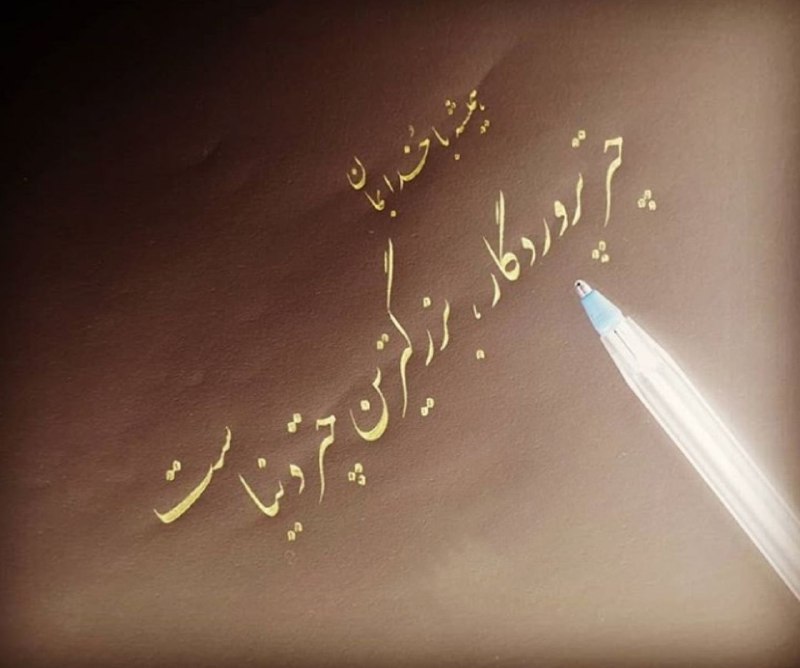 همیشه با خُدا بمان
چتر پروردگار، بزرگترین چتر دنیاست